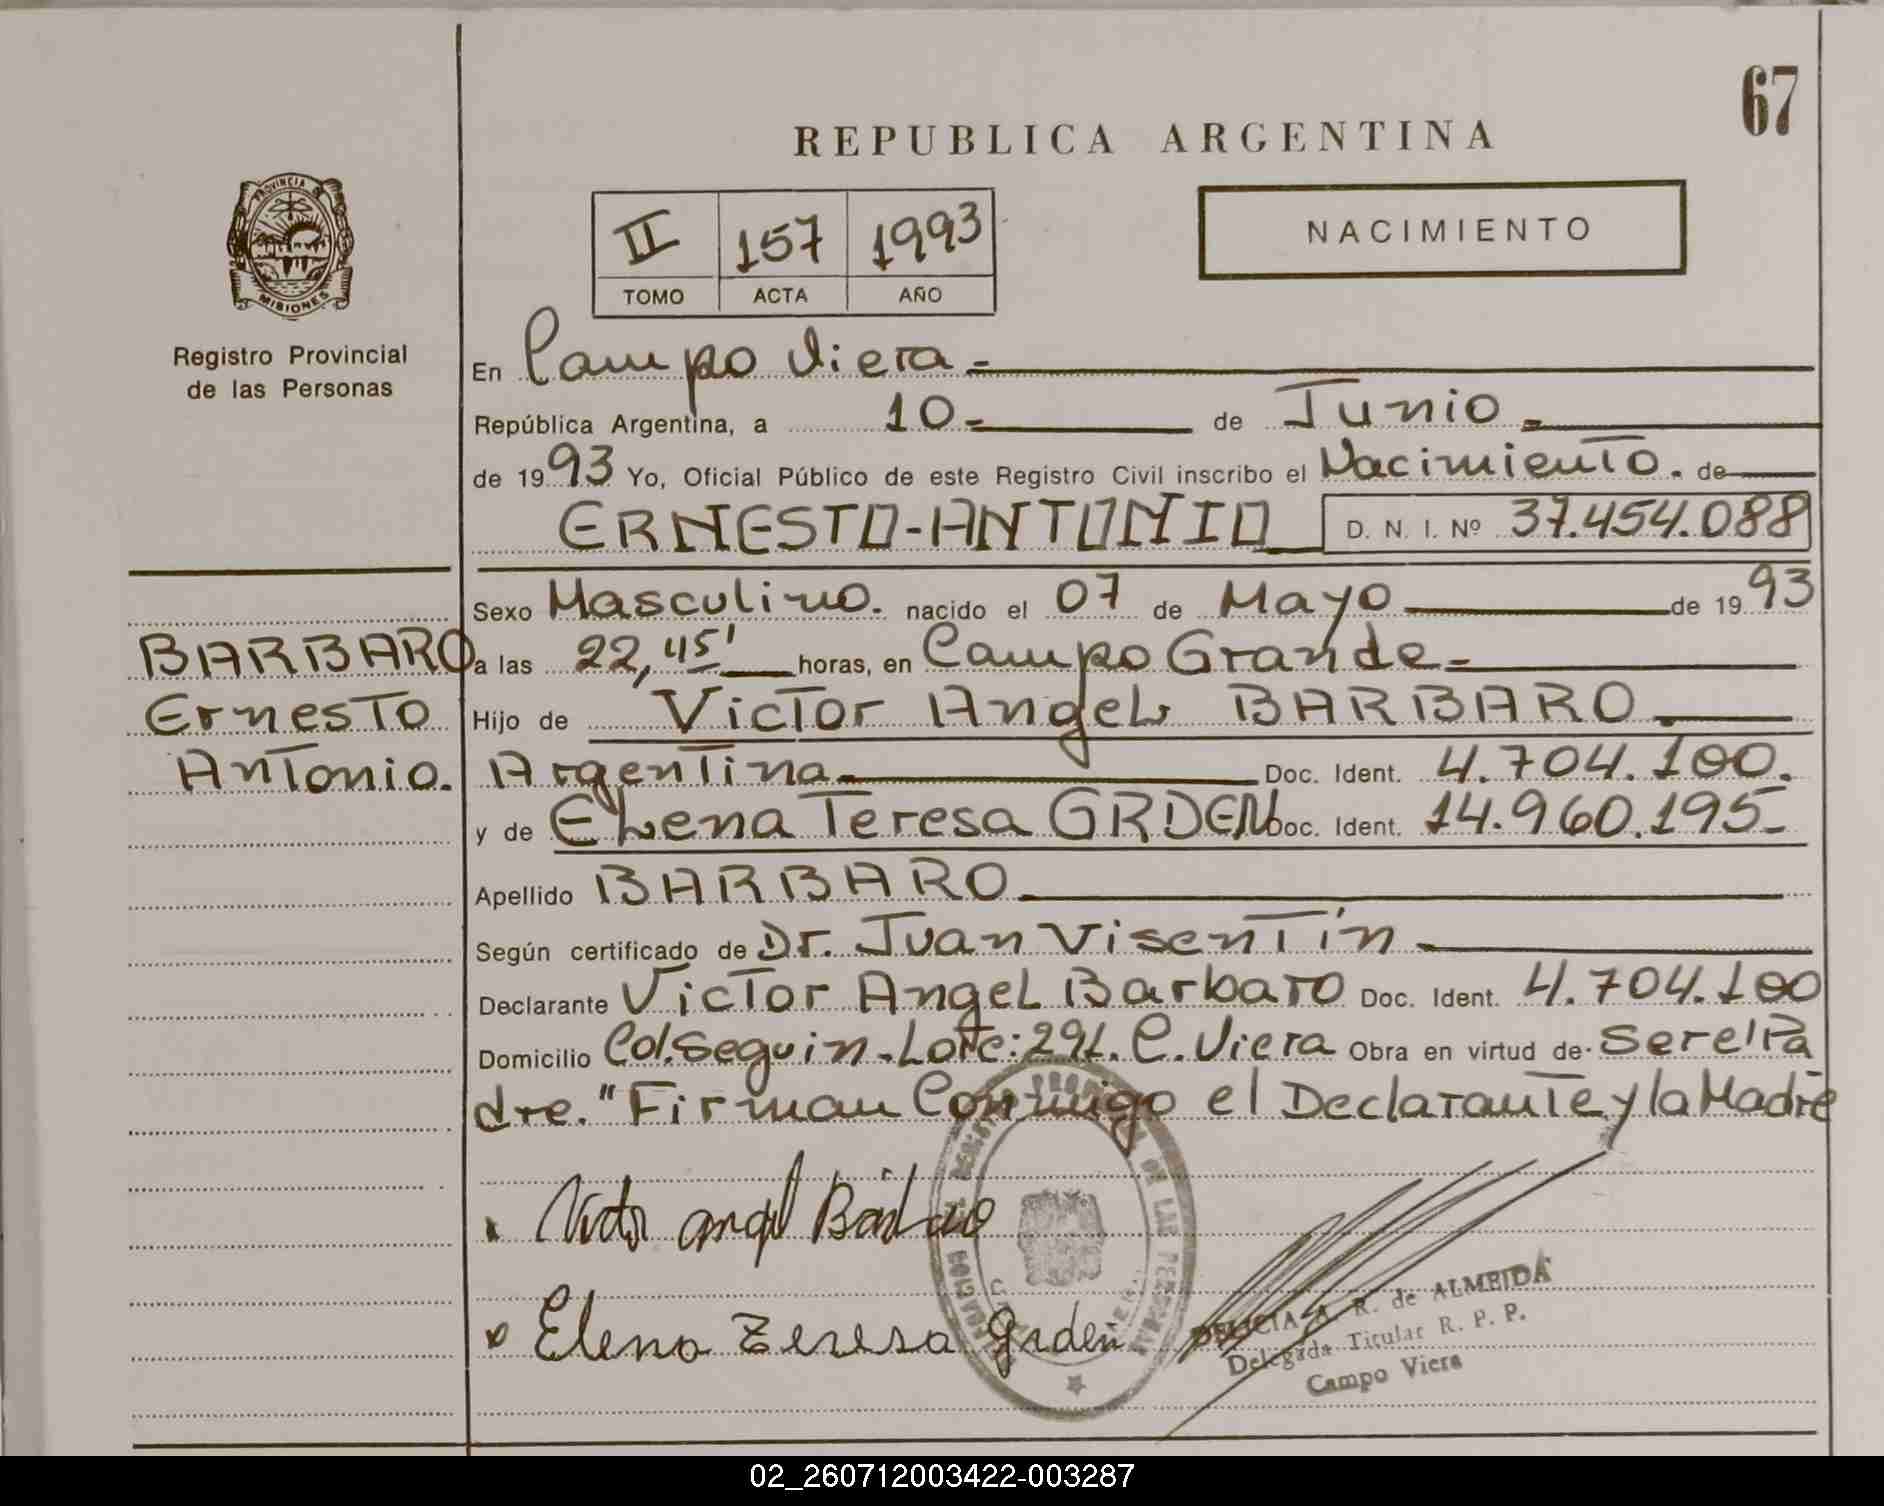 67
REPUBLICA ARGENTINA
PROVINCIA DE
MISIONES
Registro Provincial
de las Personas
II 157 1993
TOMO ACTA AÑO
NACIMIENTO
En Campo Viera.-
República Argentina, a 10.- de Junio.-
de 1993 Yo, Oficial Público de este Registro Civil inscribo el Nacimiento. de
ERNESTO-ANTONIO D. N. I. Nº 37.454.088
Sexo Masculino. nacido el 07 de Mayo de 1993
a las 22,45' horas, en Campo Grande.-
Hijo de Victor Angel BARBARO.
Argentina. Doc. Ident. 4.704.100.
y de Elena Teresa GRDEN Doc. Ident. 14.960.195.-
Apellido BARBARO
Según certificado de Dr. Juan Visentín.
Declarante Victor Angel Barbaro Doc. Ident. 4.704.100
Domicilio Col. Seguin. Lote: 291. C. Viera Obra en virtud de Ser el Pa
dre." Firman Conmigo el Declarante y la Madre
BARBARO
Ernesto
Antonio.
Victor angel Barbaro
Elena Teresa Grden
DE LAS PERSONAS
DELICIA A. R. de ALMEIDA
Delegada Titular R. P. P.
Campo Viera
02_260712003422-003287